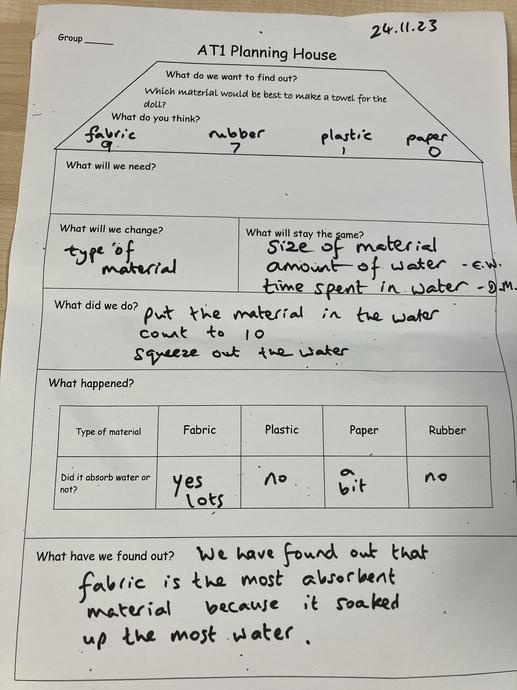 24.11.23
Group
AT1 Planning House
What do we want to find out?
Which material would be best to make a towel for the
doll?
What do you think?
fabric rubber plastic paper
9 7 1 0
What will we need?
What will we change?
type of
material
What will stay the same?
Size of material
amount of water - E.W.
time spent in water - D.M.
What did we do? put the material in the water
count to 10
squeeze out the water
What happened?
Type of material Fabric Plastic Paper Rubber
Did it absorb water or
not?
yes
lots
no
a
bit
no
What have we found out? We have found out that
fabric is the most absorbent
material because it soaked
up the most water.